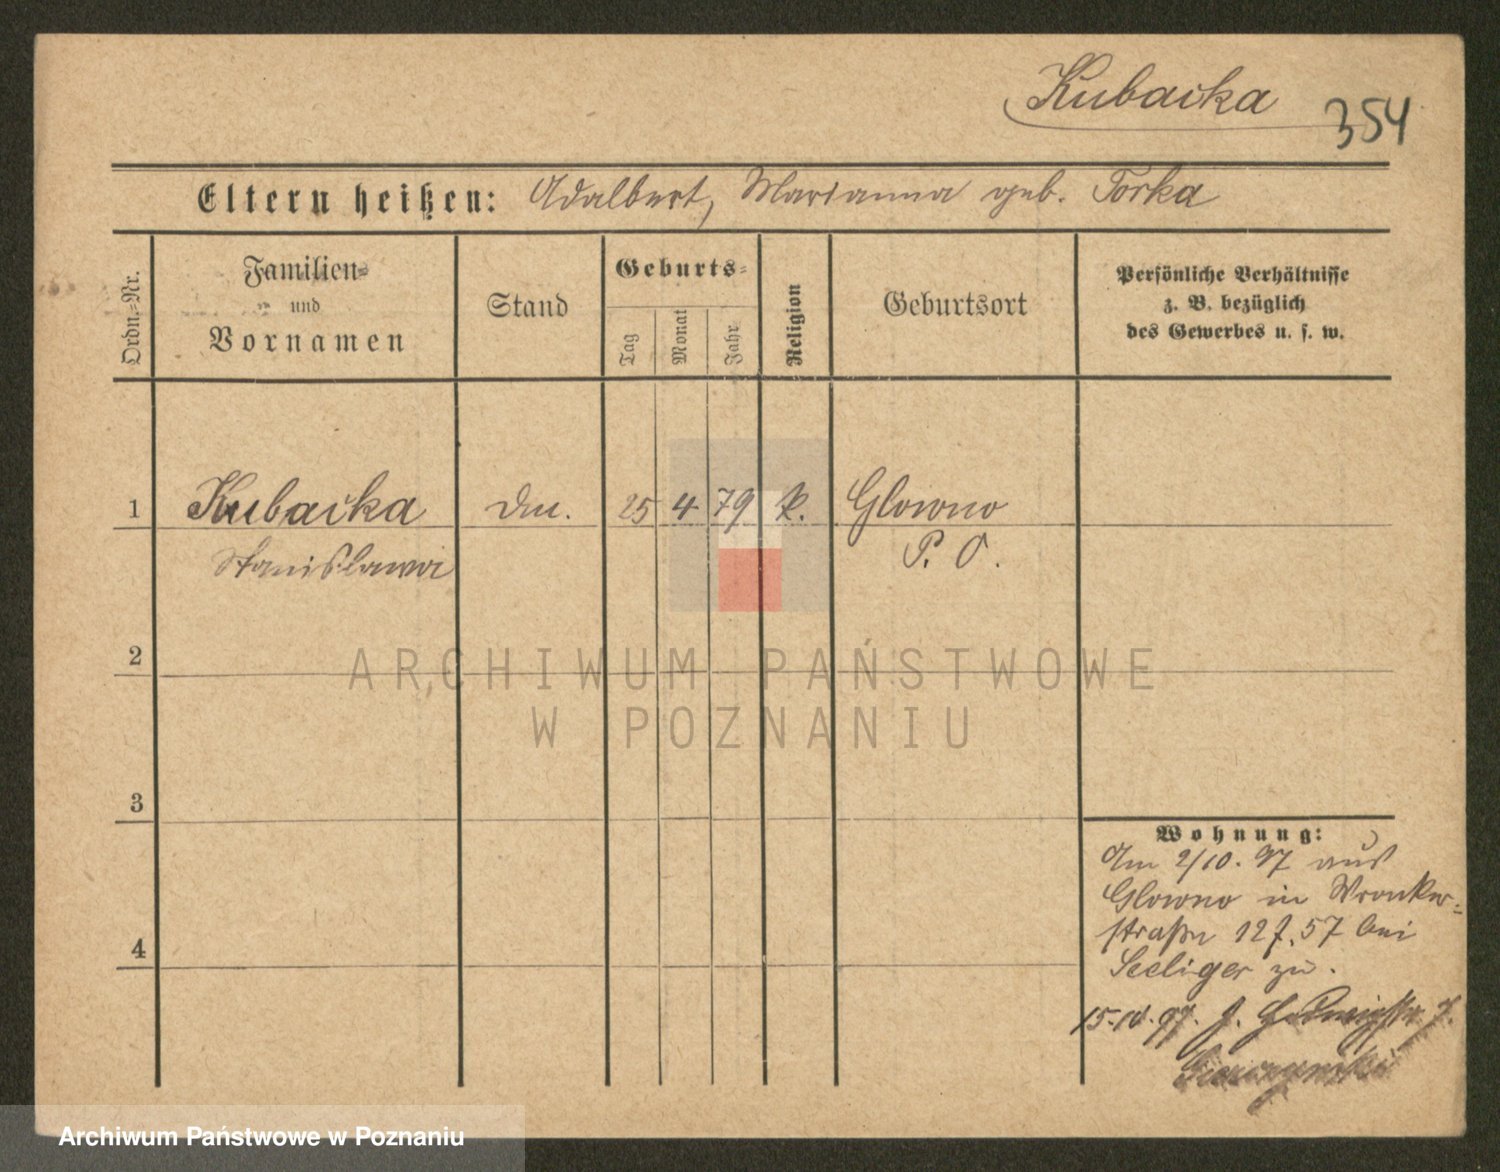 Kubacka 354
Eltern heißen: Adalbert, Marianna geb. Torka
Ordn.-Nr.
Familien- und Vornamen
Stand
Geburts-
Tag
Monat
Jahr
Religion
Geburtsort
Persönliche Verhältnisse
z. B. bezüglich
des Gewerbes u. s. w.
1 Kubacka 25 4 79 k. Glowno
Stanislawa P. O.
2
3
4
Wohnung:
Am 2/10. 97 aus
Glowno in Wronker-
straße 12 57 bei
Seeliger zu.
15.10.97.
ARCHIWUM PAŃSTWOWE
W POZNANIU
Archiwum Państwowe w Poznaniu